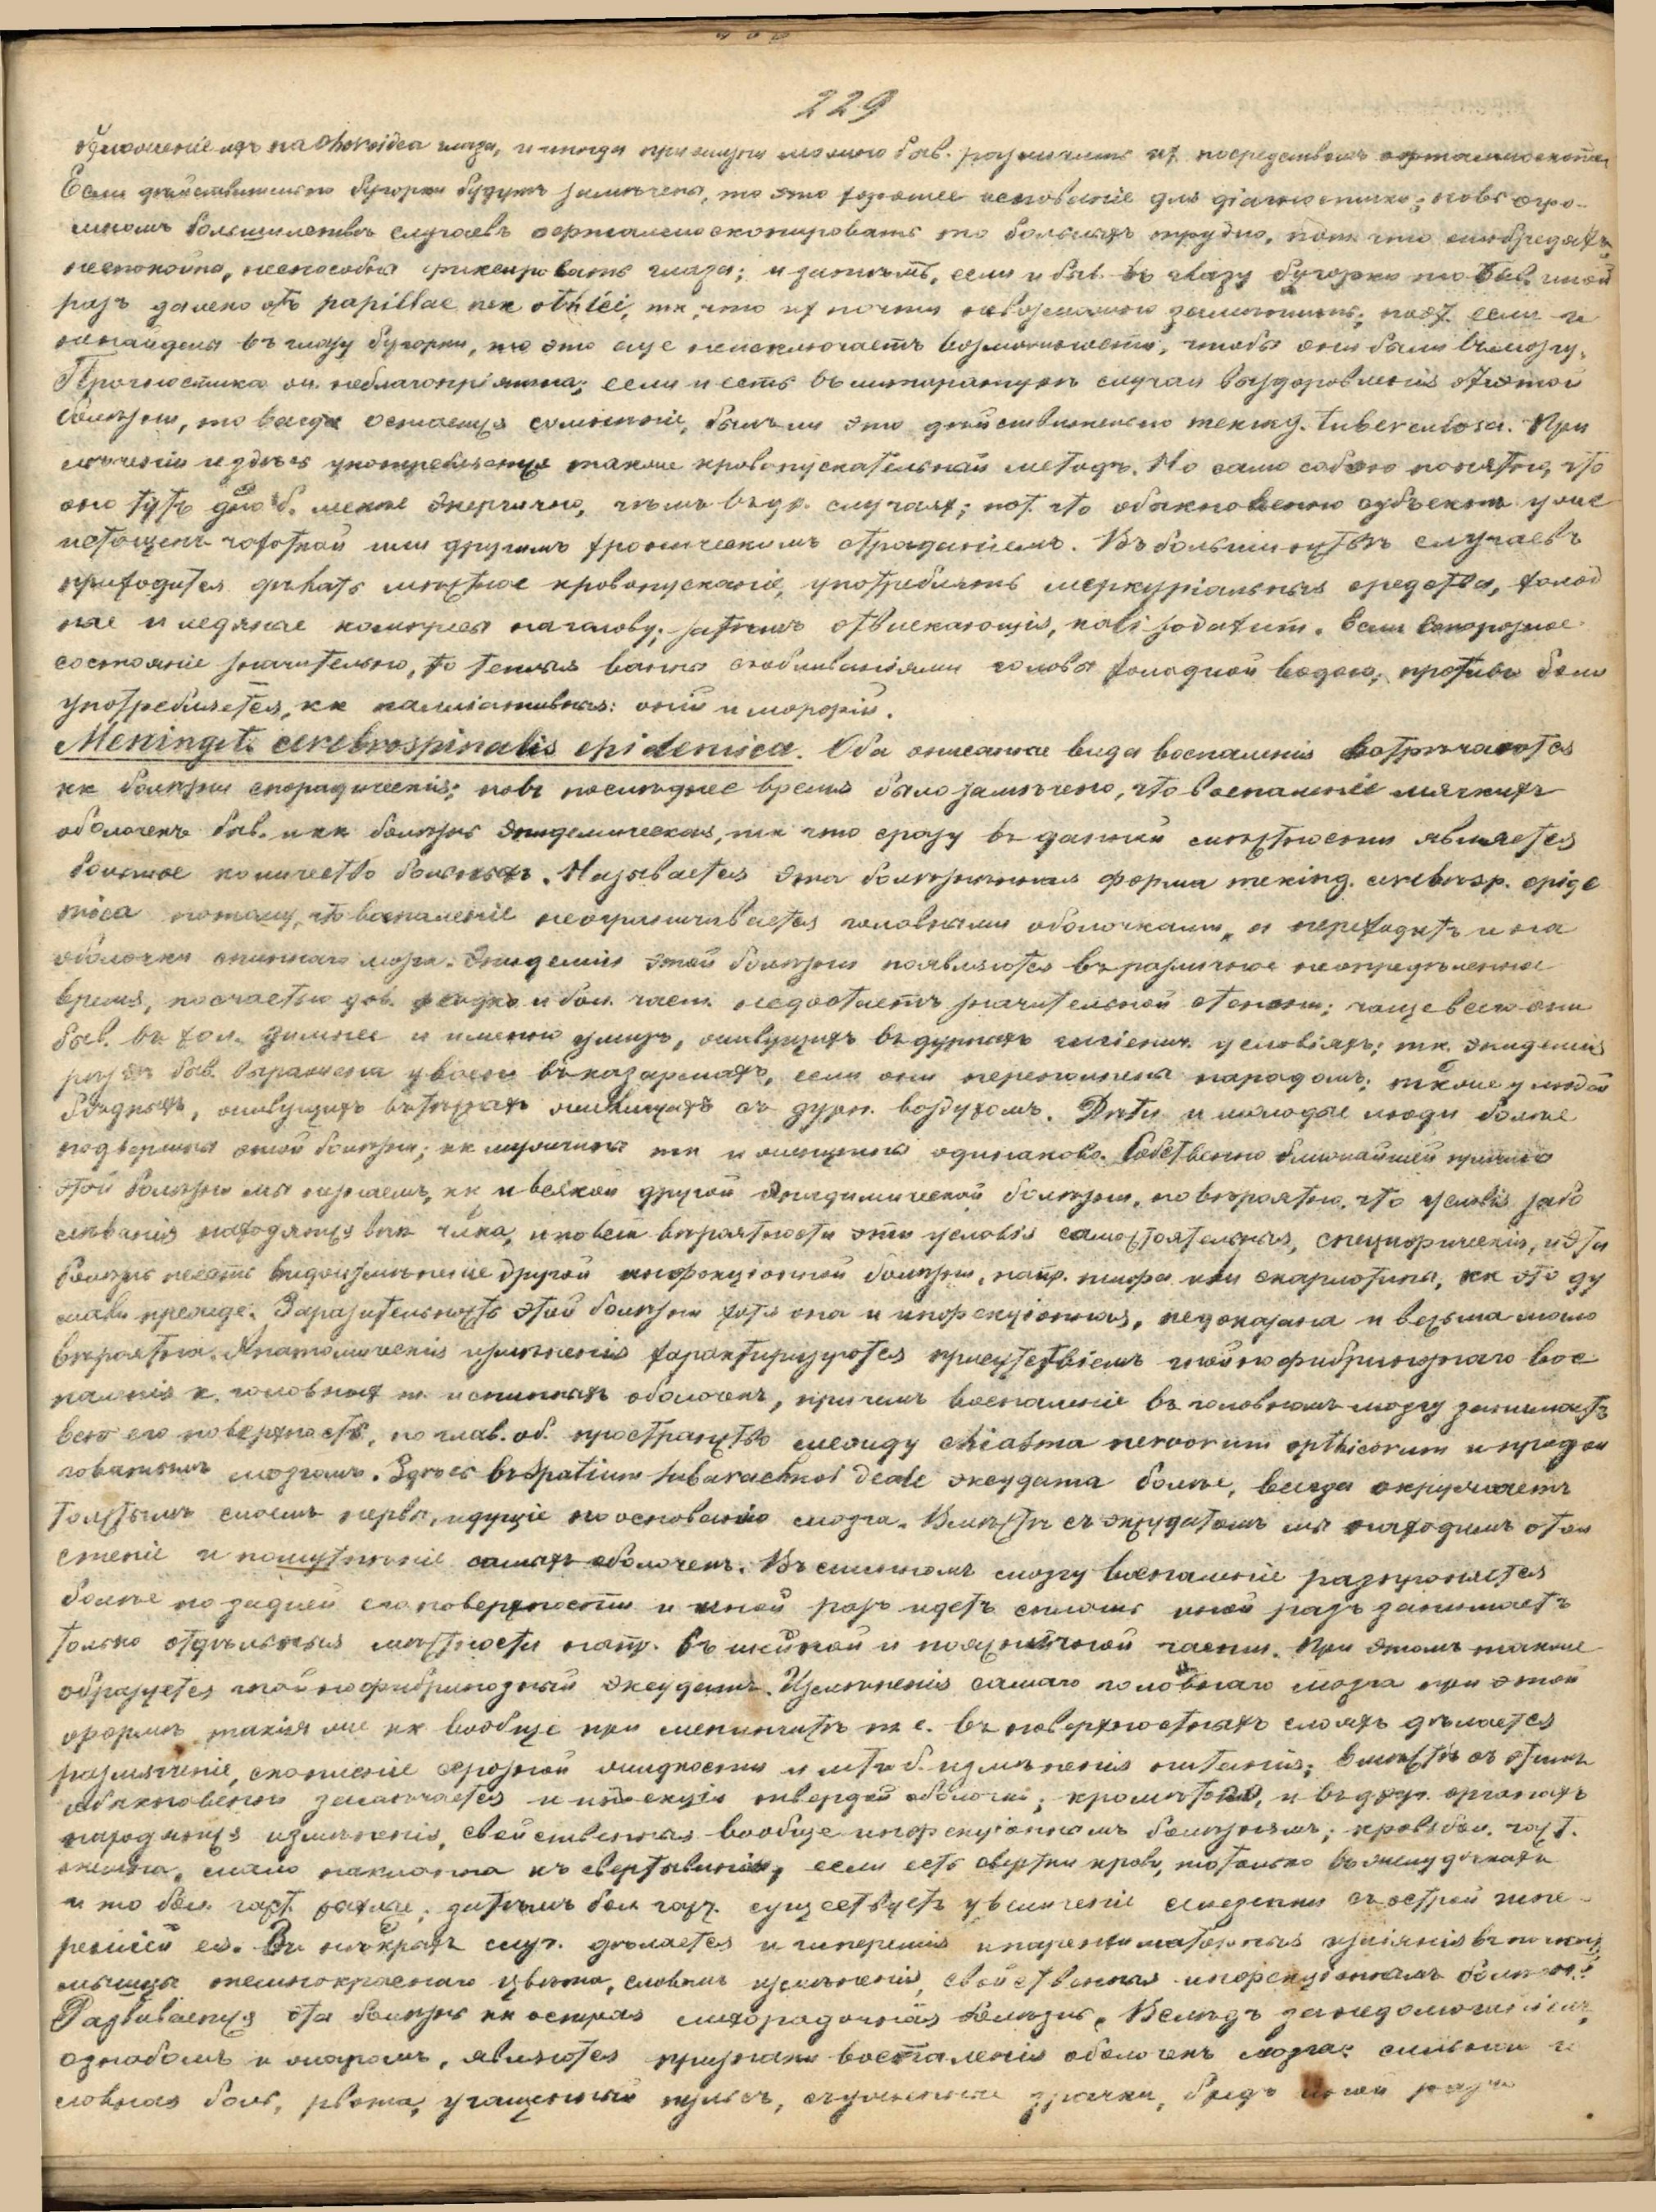 229
отложеніе ихъ на Choroidea глаза, и иногда при жизни можно быв. различить их посредствомъ офтальмоскопа.
Если дѣйствительно бугорки будутъ замѣчены, то это хорошее основаніе для діагностики; но въ огро-
мномъ большинствѣ случаевъ офтальмоскопировать то больныхъ трудно, пот. что они бредятъ,
неспокойны, неспособны фиксировать глаза; и затѣмъ, если и быв. въ глазу бугорки то быв. иной
разъ далеко отъ papillae optici, тк, что их почти невозможно замѣтить; поэт. если и
не найдены въ глазу бугорки, то это еще не исключаетъ возможности, чтобы они были въ мозгу.
Прогностика оч. неблагопріятна; если и есть въ литературѣ случаи выздоровленія от этой
болѣзни, то всегда остается сомнѣніе, былъ ли это дѣйствительно mening. tuberculosa. При
лѣченіи и здѣсь употребляется также кровопускательный методъ. Но само собою понятно, что
оно тутъ д. б. менѣе энергично, чѣмъ въ др. случаях; пот. что обыкновенно субъектъ уже
истощенъ чахоткой или другимъ хроническимъ страданіемъ. Въ большинствѣ случаевъ
приходится дѣлать мѣстное кровопусканіе, употреблять меркуріальныя средства, холод
ные и ледяные компресы на голову; затѣмъ отвлекающія, kali jodatum. Если сопорозное
состояніе значительно, то теплыя ванны с обливаніями головы холодной водою; противъ боли
употребляется, кк палліативныя: опій и морфій.
Meningitis cerebrospinalis epidemica. Оба описанные вида воспаленія встрѣчаются
кк болѣзни спорадическія; но въ послѣднее время было замѣчено, что воспаленіе мягкихъ
оболочекъ быв. и кк болѣзнь эпидемическая, тк что сразу въ данной мѣстности является
большое количество больныхъ. Называется эта болѣзненная форма mening. cerebrosp. epide
mica потому, что воспаленіе не ограничивается головными оболочками, а переходитъ и на
оболочки спиннаго мозга. Эпидеміи этой болѣзни появляются въ различное неопредѣленное
время, по счастью дов. рѣдко и бол. част. не достигаетъ значительной степени; чаще всего они
быв. въ хол. зимнее и именно у лицъ, живущихъ въ дурныхъ гигіенич. условіяхъ; тк. эпидемія
разъ быв. выражена у войскъ въ казармахъ, если они переполнены народомъ; также у людей
бѣдныхъ, живущихъ въ жилищахъ съ дурн. воздухомъ. Дѣти и молодые люди болѣе
подвержены этой болѣзни; кк мужчины тк и женщины одинаково. Собственно ближайшей причины
этой болѣзни мы не знаемъ, кк и всякой другой эпидемической болѣзни, но вѣроятно, что условія забо
лѣванія находятся внѣ члка, и по всей вѣроятности эти условія самостоятельныя, специфическія, и эта
болѣзнь не есть видоизмѣненіе другой инфекціонной болѣзни, напр. тифа или скарлатины, кк это ду
мали прежде. Заразительность этой болѣзни хотя она и инфекціонная, не доказана и весьма мало
вѣроятна. Анатомическія измѣненія характеризуются присутствіемъ гнойно фибринознаго вос
паленія к. головных т. и спинныхъ оболочекъ, причемъ воспаленіе въ головномъ мозгу занимаетъ
всю его поверхность, но глав. об. пространство между chiasma nervorum opthicorum и продол
говатымъ мозгомъ. Здѣсь въ Spatium subarachnoideale эксудата болѣе, всегда окружаетъ
толстымъ слоемъ нервы, идущіе по основанію мозга. Вмѣстѣ съ эксудатомъ мы находимъ утол
щеніе и помутнѣніе самыхъ оболочекъ. Въ спинномъ мозгу воспаленіе распространяется
болѣе по задней его поверхности и иной разъ идетъ сплошь иной разъ занимаетъ
только отдѣльныя мѣстности напр. въ шейной и поясничной части. При этомъ также
образуется гнойно фибринозный эксудатъ. Измѣненія самаго головнаго мозга при этой
формѣ такія же кк вообще при менингитѣ т. е. въ поверхностныхъ слояхъ дѣлается
размягченіе, скопленіе серозной жидкости и измѣненія питанія; вмѣстѣ съ этимъ
обыкновенно замѣчается и инъекція твердой оболочки; кромѣ того, и въ друг. органахъ
находятся измѣненія, свойственныя вообще инфекціоннымъ болѣзнямъ; кровь бол. част.
жидка, мало наклонна къ свертыванію, если есть свертки крови, то только въ желудочкахъ
и то бол. част. рыхлые; затѣмъ бол част. существуетъ увеличеніе селезенки съ острой гипе-
реміей ея. Въ нѣкрыхъ случ. дѣлается и гиперемія и паренхиматозныя изліянія въ почках,
мышцы темнокраснаго цвѣта, словомъ измѣненія, свойственныя инфекціоннымъ болѣзн.
Развивается эта болѣзнь кк острая лихорадочная болѣзнь. Вслѣдъ за недомоганіемъ,
ознобомъ и жаромъ, являются признаки воспаленія оболочекъ мозга: сильная го
ловная боль, рвота, учащенный пульсъ, съуженные зрачки, бредъ иной разъ